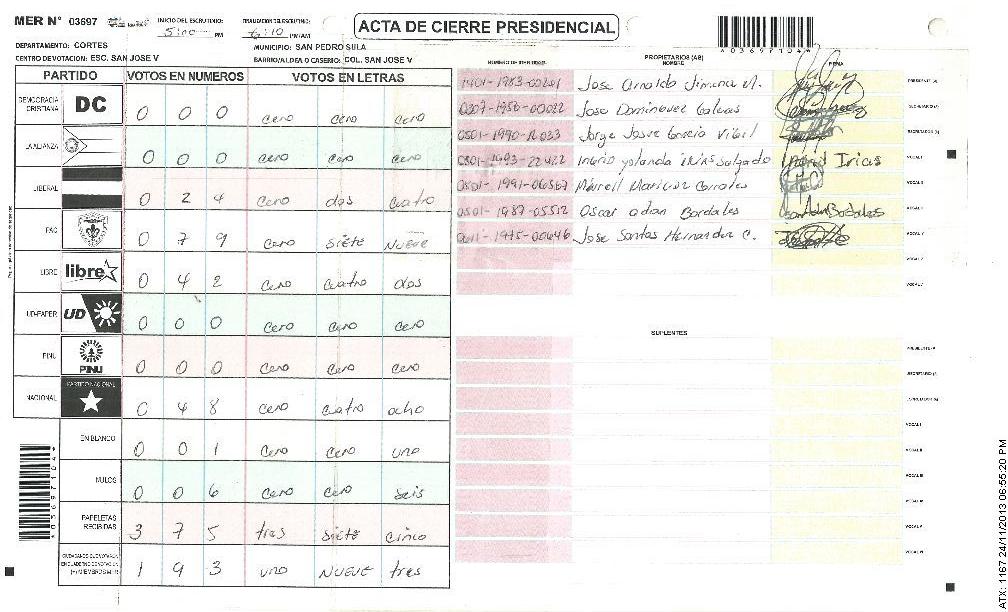 MER N° 03697
INICIO DEL ESCRUTINIO: 5:00 PM
FINALIZACION DEL ESCRUTINIO: 6:10 PM/AM
ACTA DE CIERRE PRESIDENCIAL
*03697104*
DEPARTAMENTO: CORTES
MUNICIPIO: SAN PEDRO SULA
CENTRO DE VOTACION: ESC. SAN JOSE V
BARRIO/ALDEA O CASERIO: COL. SAN JOSE V
PARTIDO VOTOS EN NUMEROS VOTOS EN LETRAS
DEMOCRACIA CRISTIANA DC 0 0 0 cero cero cero
LA ALIANZA 0 0 0 cero cero cero
LIBERAL 0 2 4 cero dos cuatro
PAC 0 7 9 cero siete nueve
LIBRE libre 0 4 2 cero cuatro dos
UD-FAPER UD 0 0 0 cero cero cero
PINU PINU 0 0 0 cero cero cero
NACIONAL PARTIDO NACIONAL 0 4 8 cero cuatro ocho
EN BLANCO 0 0 1 cero cero uno
NULOS 0 0 6 cero cero seis
PAPELETAS RECIBIDAS 3 7 5 tres siete cinco
1 9 3 uno NUEVE tres
NUMERO DE IDENTIDAD PROPIETARIOS (AS) NOMBRE FIRMA
Jose Arnaldo Jimenez M. PRESIDENTE (A)
0307-1950-00022 Jose Dominguez SECRETARIO (A)
Jorge Josue Garcia ESCRUTADOR (A)
Ingrid Yolanda Irias Salgado Ingrid Irias VOCAL I
Maricruz VOCAL II
0501-1987-05512 Oscar Adan Bordales Oscar Adan Bordales
Jose Santos Hernandez C. VOCAL V
SUPLENTES
PRESIDENTE/A
SECRETARIO (A)
ESCRUTADOR (A)
VOCAL I
VOCAL II
VOCAL III
VOCAL IV
VOCAL V
VOCAL VI
*03697104*
ATX: 1167 24/11/2013 06:55:20 PM